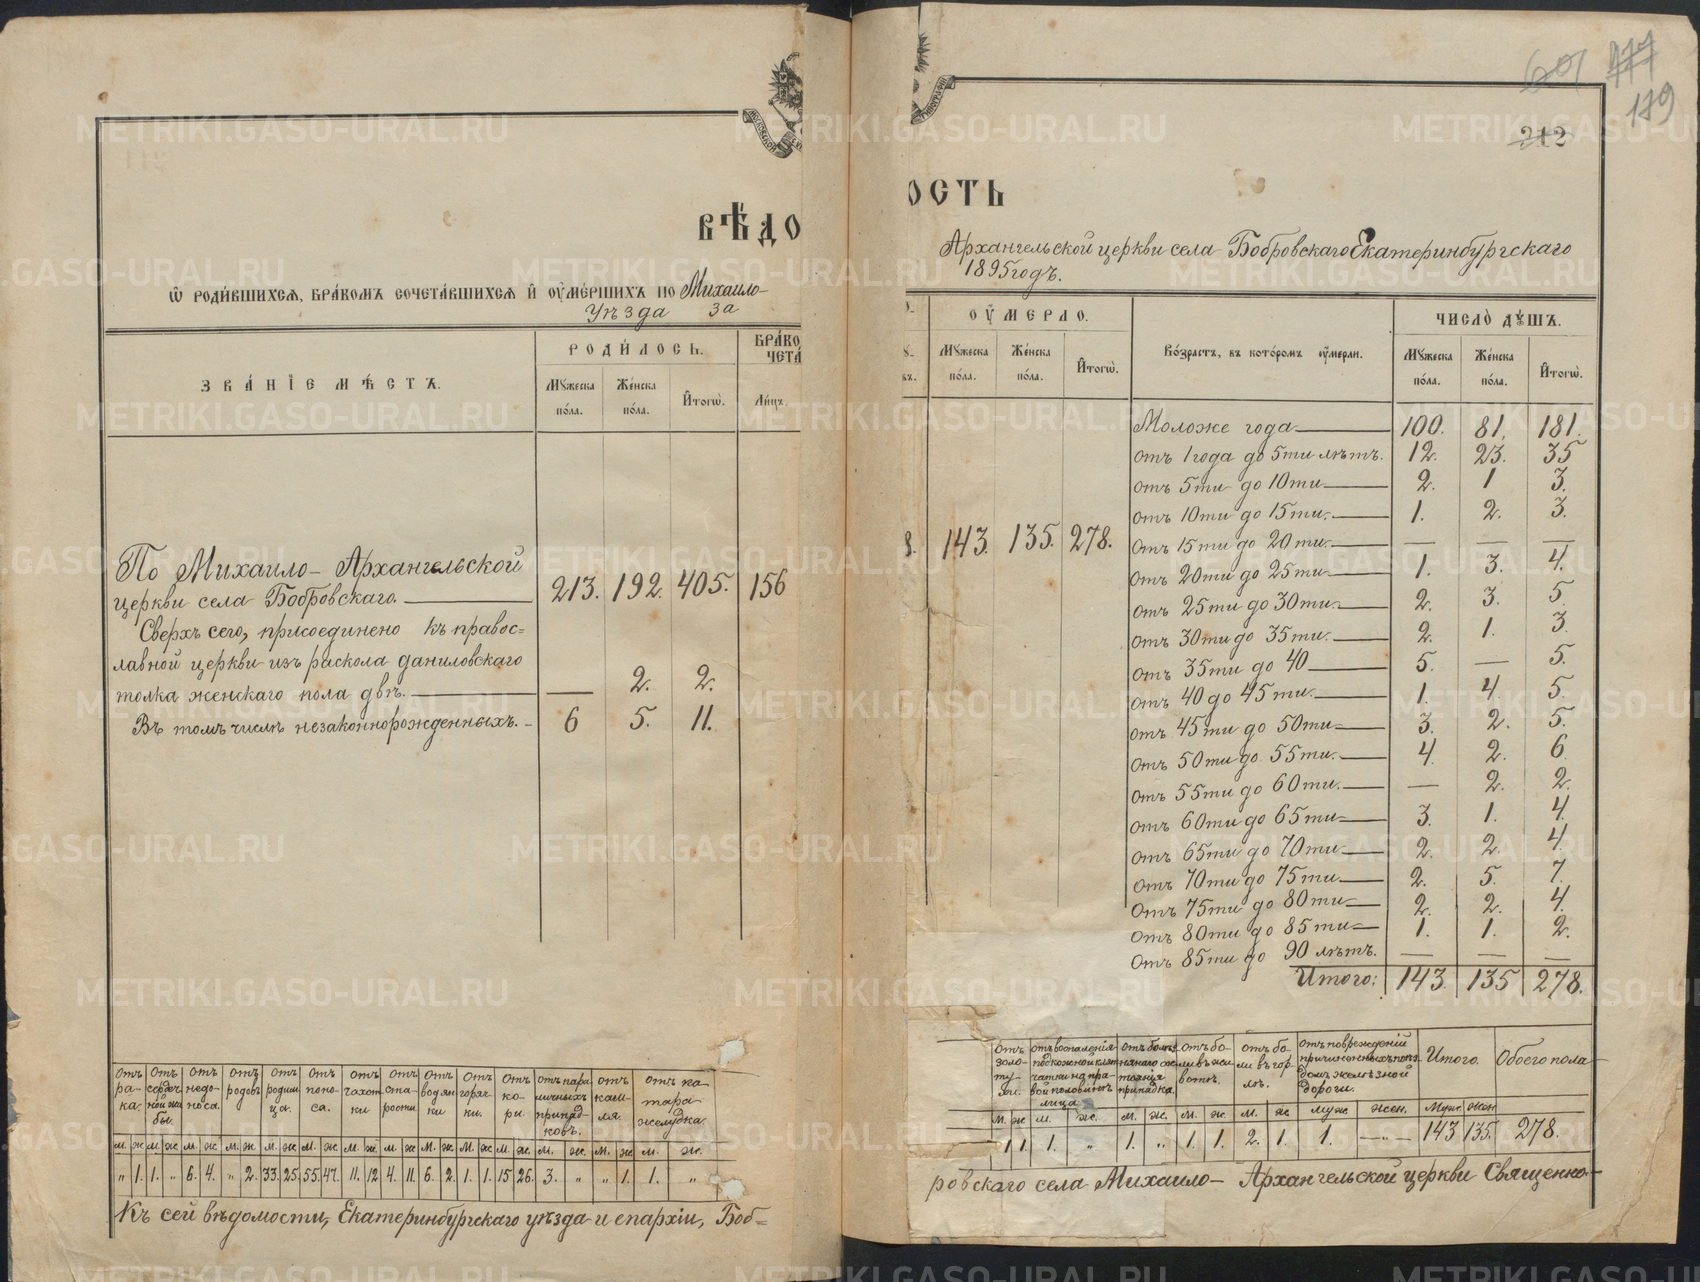 ВѢДО
Ѡ РОДИ́ВШИХСѦ, БРА́КОМЪ СОЧЕТА́ВШИХСѦ И҆ ОУ҆МЕ́РШИХЪ ПО Михаило-
Уѣзда за
ЗВА́НЇЕ МѢ́СТЪ.
РОДИ́ЛОСЬ.
БРА́КО
ЧЕТА́
Мꙋжеска по́ла.
Же́нска по́ла.
И҆тогѡ̀.
Ли́цъ.
По Михаило-Архангельской
церкви села Бобровскаго. 213. 192. 405. 156
Сверхъ сего, присоединено къ правос=
лавной церкви изъ раскола даниловскаго
толка женскаго пола двѣ. — 2. 2.
Въ томъ числѣ незаконнорожденныхъ. - 6 5. 11.
Отъ рака.
Отъ сердечной жабы.
Отъ недоноса.
Отъ родовъ
Отъ родимца.
Отъ поноса.
Отъ чахотки
Отъ старости.
Отъ водянки
Отъ горячки.
Отъ кори.
Отъ параличныхъ припадковъ.
Отъ камля.
Отъ катара желудка.
м. ж м. ж м. ж м. ж. м. ж м. ж. м. ж. м. ж. м. ж. м. ж м. ж. м. ж. м. ж м. ж.
" 1. 1. " 6. 4. " 2. 33. 25. 55. 47. 11. 12 4. 11. 6. 2. 1. 1. 15 26. 3. " " 1. 1. "
Къ сей вѣдомости, Екатеринбургскаго уѣзда и епархіи, Боб=
179
212
ОСТЬ
Архангельской церкви села Бобровскаго Екатеринбургскаго
1895 годъ.
ОУ҆́МЕРЛО.
Мꙋжеска по́ла.
Же́нска по́ла.
И҆тогѡ̀.
Во́зрастъ, въ кото́ромъ оу҆́мерли.
ЧИСЛО̀ ДꙊ́ШЪ.
Мꙋжеска по́ла.
Же́нска по́ла.
И҆тогѡ̀.
8. 143. 135. 278.
Моложе года 100. 81. 181.
отъ 1 года до 5ти лѣтъ. 12. 23. 35
отъ 5ти до 10ти 2. 1 3.
отъ 10ти до 15ти. 1. 2. 3.
отъ 15ти до 20ти. — — —
отъ 20ти до 25ти 1. 3. 4.
отъ 25ти до 30ти. 2. 3. 5.
отъ 30ти до 35ти. 2. 1. 3.
отъ 35ти до 40 5. — 5.
отъ 40 до 45ти. 1. 4. 5.
отъ 45ти до 50ти 3. 2. 5.
отъ 50ти до 55ти. 4. 2. 6.
отъ 55ти до 60ти. — 2. 2.
отъ 60ти до 65ти 3. 1. 4.
отъ 65ти до 70ти 2. 2. 4.
отъ 70ти до 75ти 2. 5. 7.
отъ 75ти до 80ти 2. 2. 4.
отъ 80ти до 85ти 1. 1. 2.
отъ 85ти до 90 лѣтъ. — — —
Итого: 143. 135 278.
Отъ золотухи.
Отъ воспаленія подкожной клѣтчатки на правой половинѣ лица
Отъ боли въ животѣ.
Отъ боли въ горлѣ.
Отъ поврежденій причиненныхъ поѣздомъ желѣзной дороги.
Итого.
Обоего пола
м. ж м. ж. м. ж. м. ж. м. ж муж жен. Муж. Жен
1 1. 1. " 1. " 1. 1. 2. 1. 1. — " — 143 135. 278.
ровскаго села Михаило-Архангельской церкви Священно-
METRIKI.GASO-URAL.RU